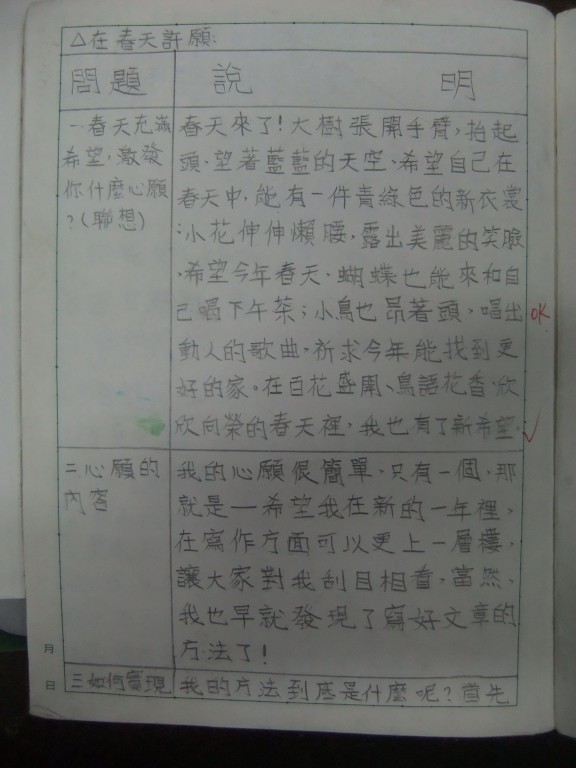 △在春天許願:
問題 說 明
一春天充滿
希望,激發
你什麼心願
?(聯想)
春天來了!大樹張開手臂,抬起
頭,望著藍藍的天空,希望自己在
春天中,能有一件青綠色的新衣裳
;小花伸伸懶腰,露出美麗的笑臉
,希望今年春天,蝴蝶也能來和自
己喝下午茶;小鳥也昂著頭,唱出
OK
動人的歌曲,祈求今年能找到更
好的家。在百花盛開、鳥語花香、欣
欣向榮的春天裡,我也有了新希望。
二心願的
內容
我的心願很簡單,只有一個,那
就是—希望我在新的一年裡,
在寫作方面可以更上一層樓,
讓大家對我刮目相看,當然,
我也早就發現了寫好文章的
方法了!
月
日
三如何實現
我的方法到底是什麼呢?首先